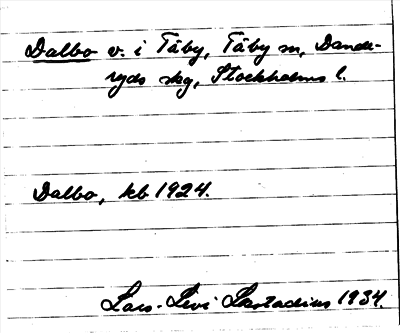 Dalbo v. i Täby, Täby sn, Dande-
ryds skg, Stockholms l.
Dalbo, kb 1924.
Lars-Levi Læstadius 1934.